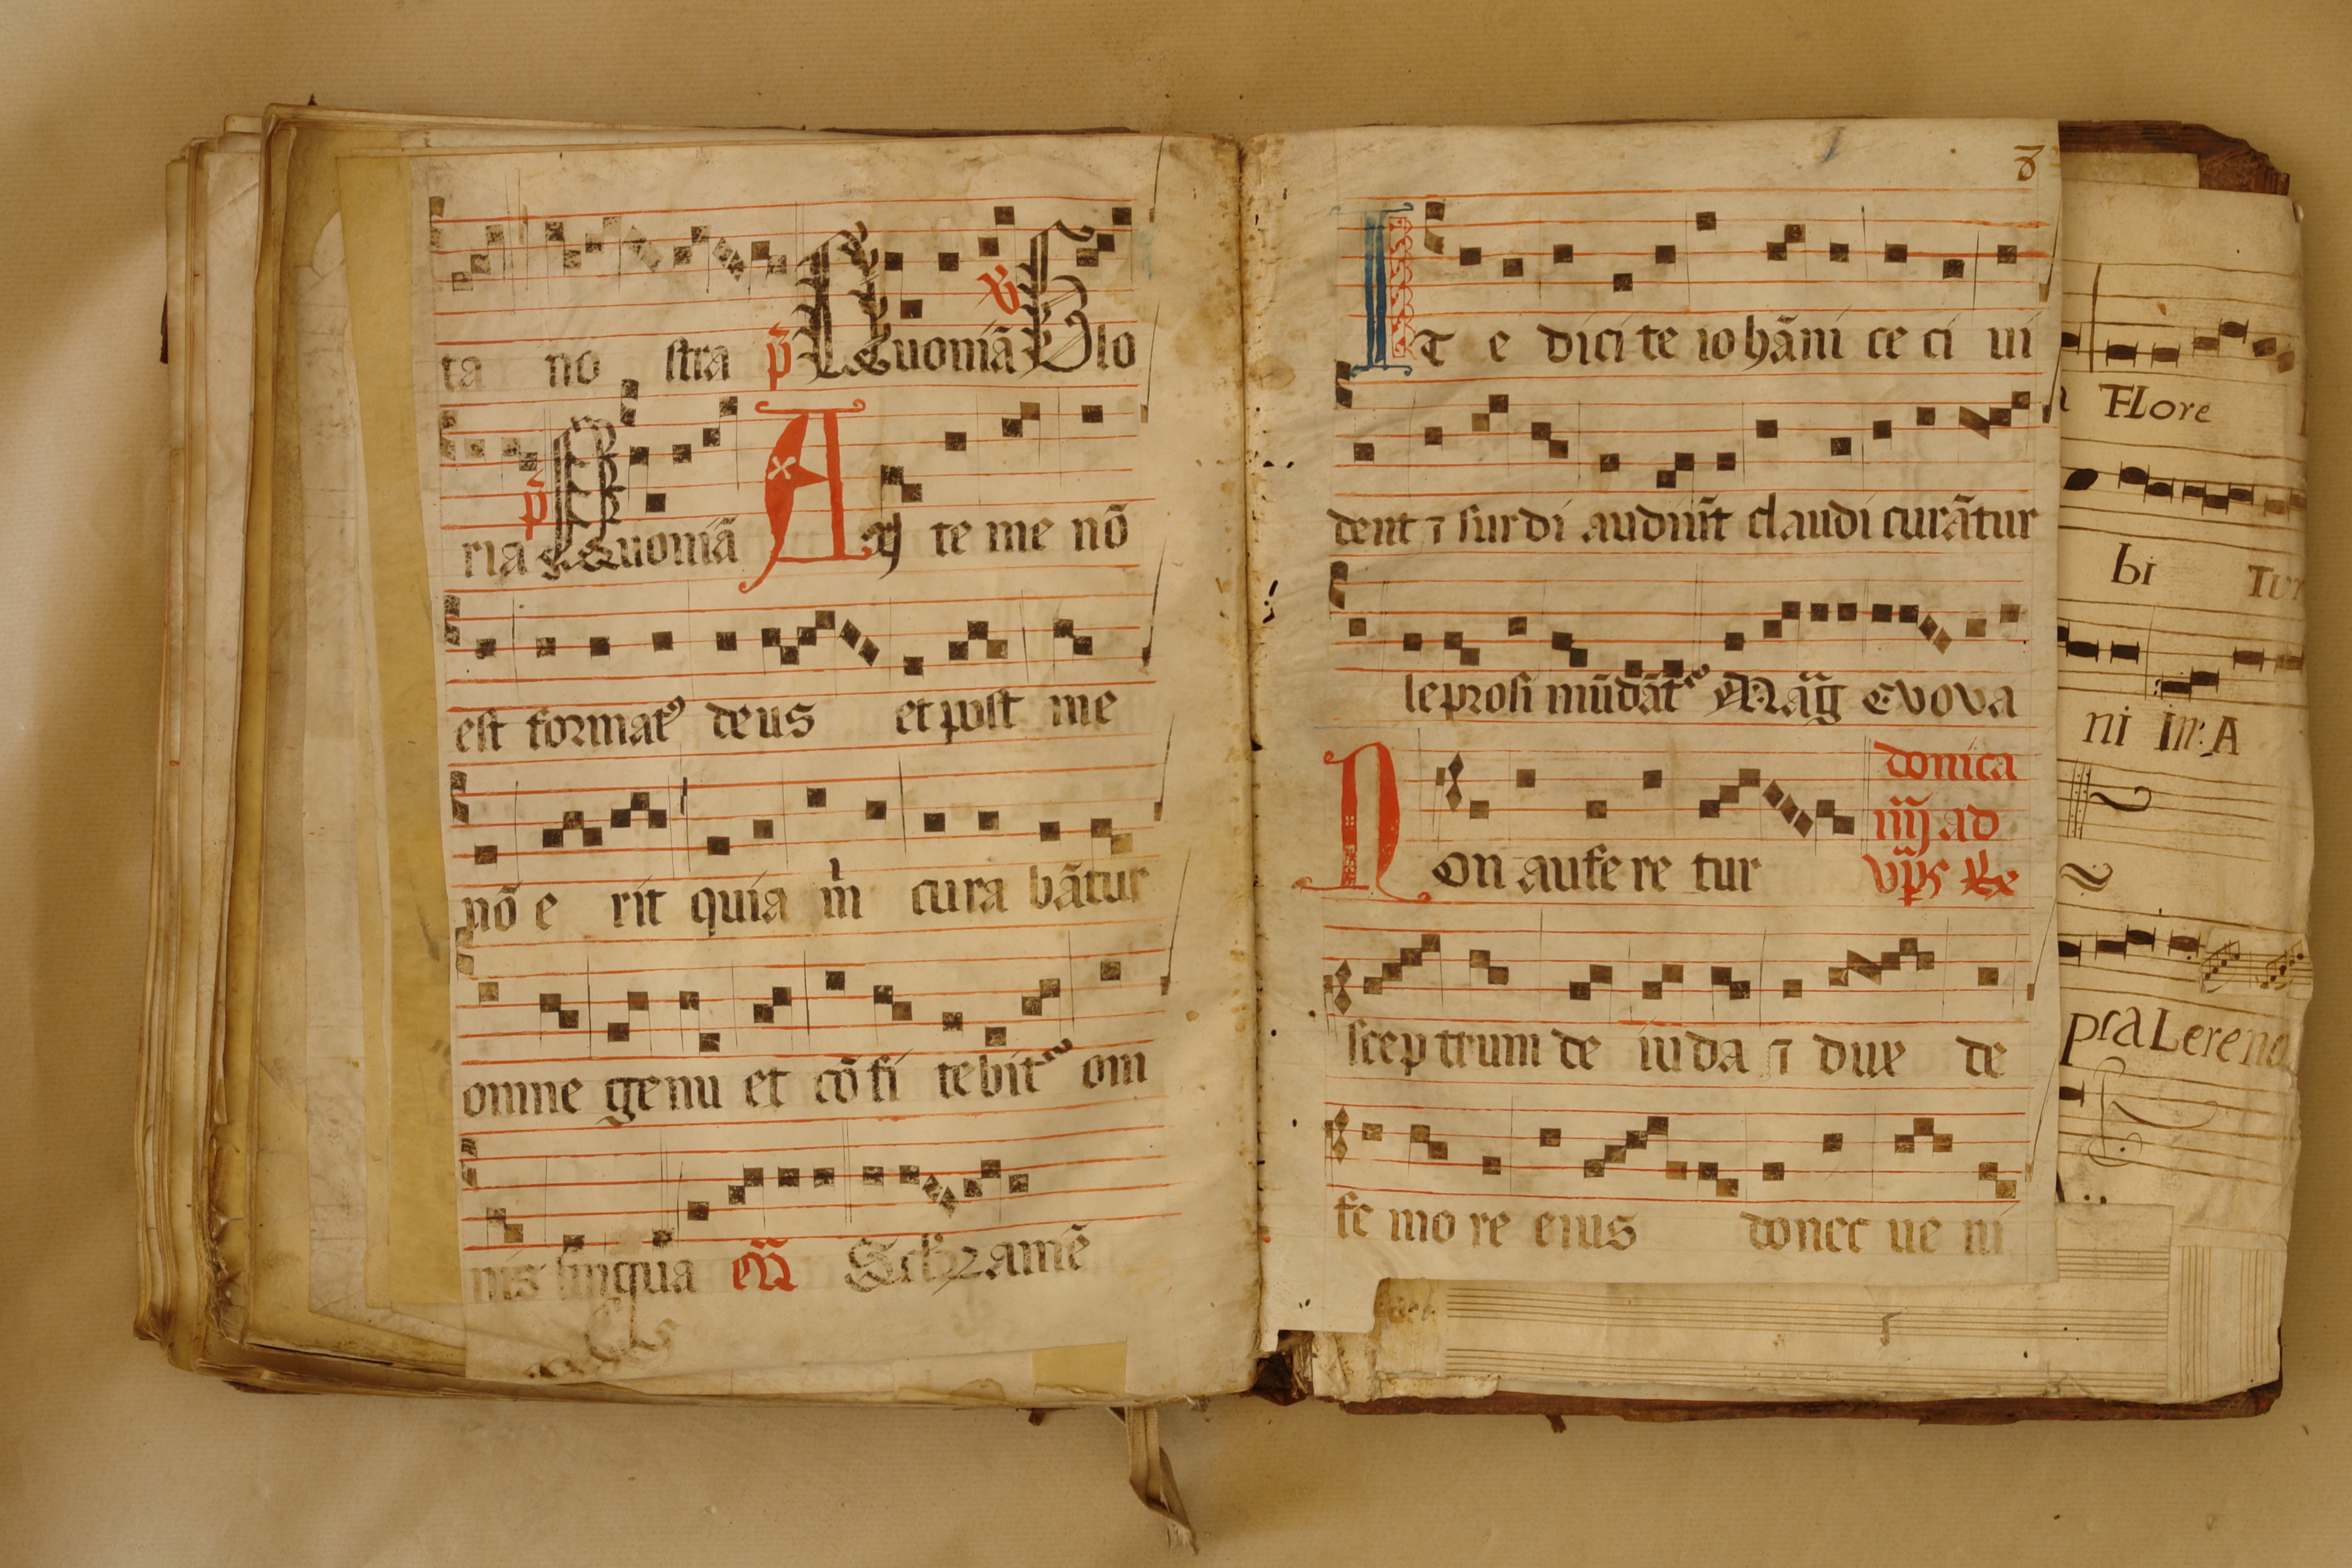 ta no stra p̄ Quoniā ℣ Glo
ria p̄ Quoniā An te me nō
est formatꝰ deus et post me
nō e rit quia m̄ cura bātur
omne genu et cō fi tebit᷑ om
nis lingua Scło2 amē
8
IT e dici te iohāni ce ci ui
dent ⁊ surdi audiūt claudi curātur
leprosi mūdāt᷑ Māg evova
Non aufe re tur donica
iiij ad
vp̄s ℟
sceptrum de iuda ⁊ dux de
fe mo re eius donec ue ni
FLore
bi Tur
ni in: A
pra Lereno